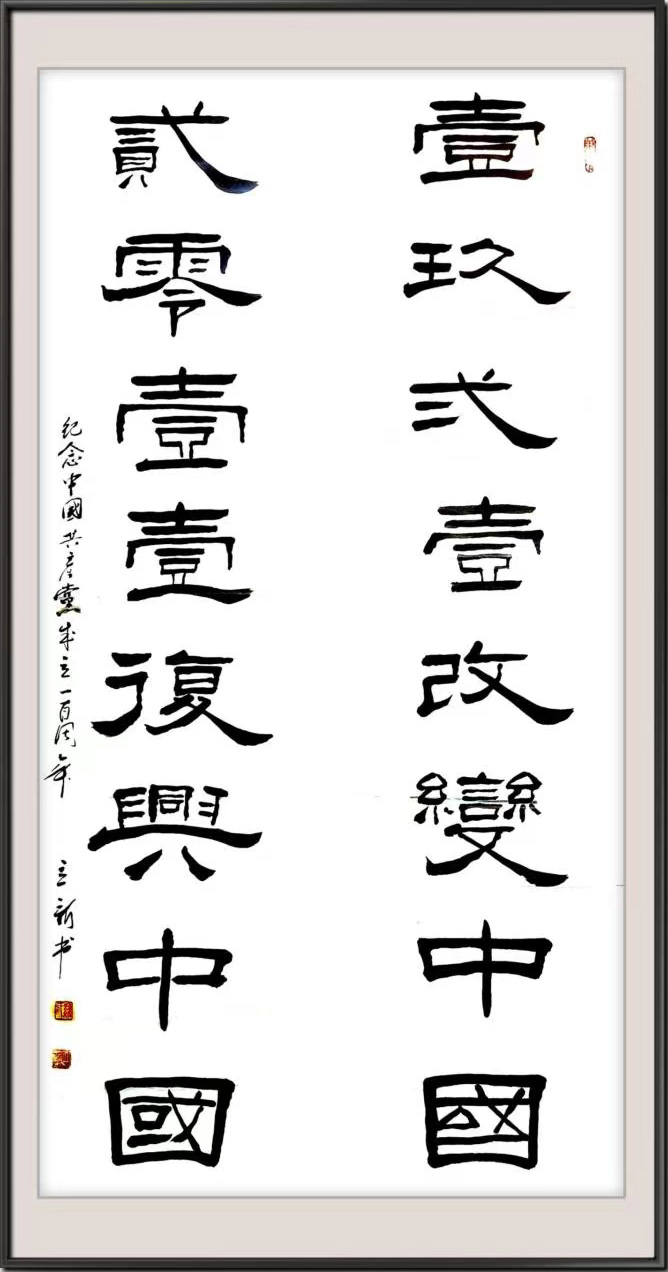 壹玖弍壹改變中國
貳零壹壹復興中國
纪念中國共产黨成立一百周年
立新书